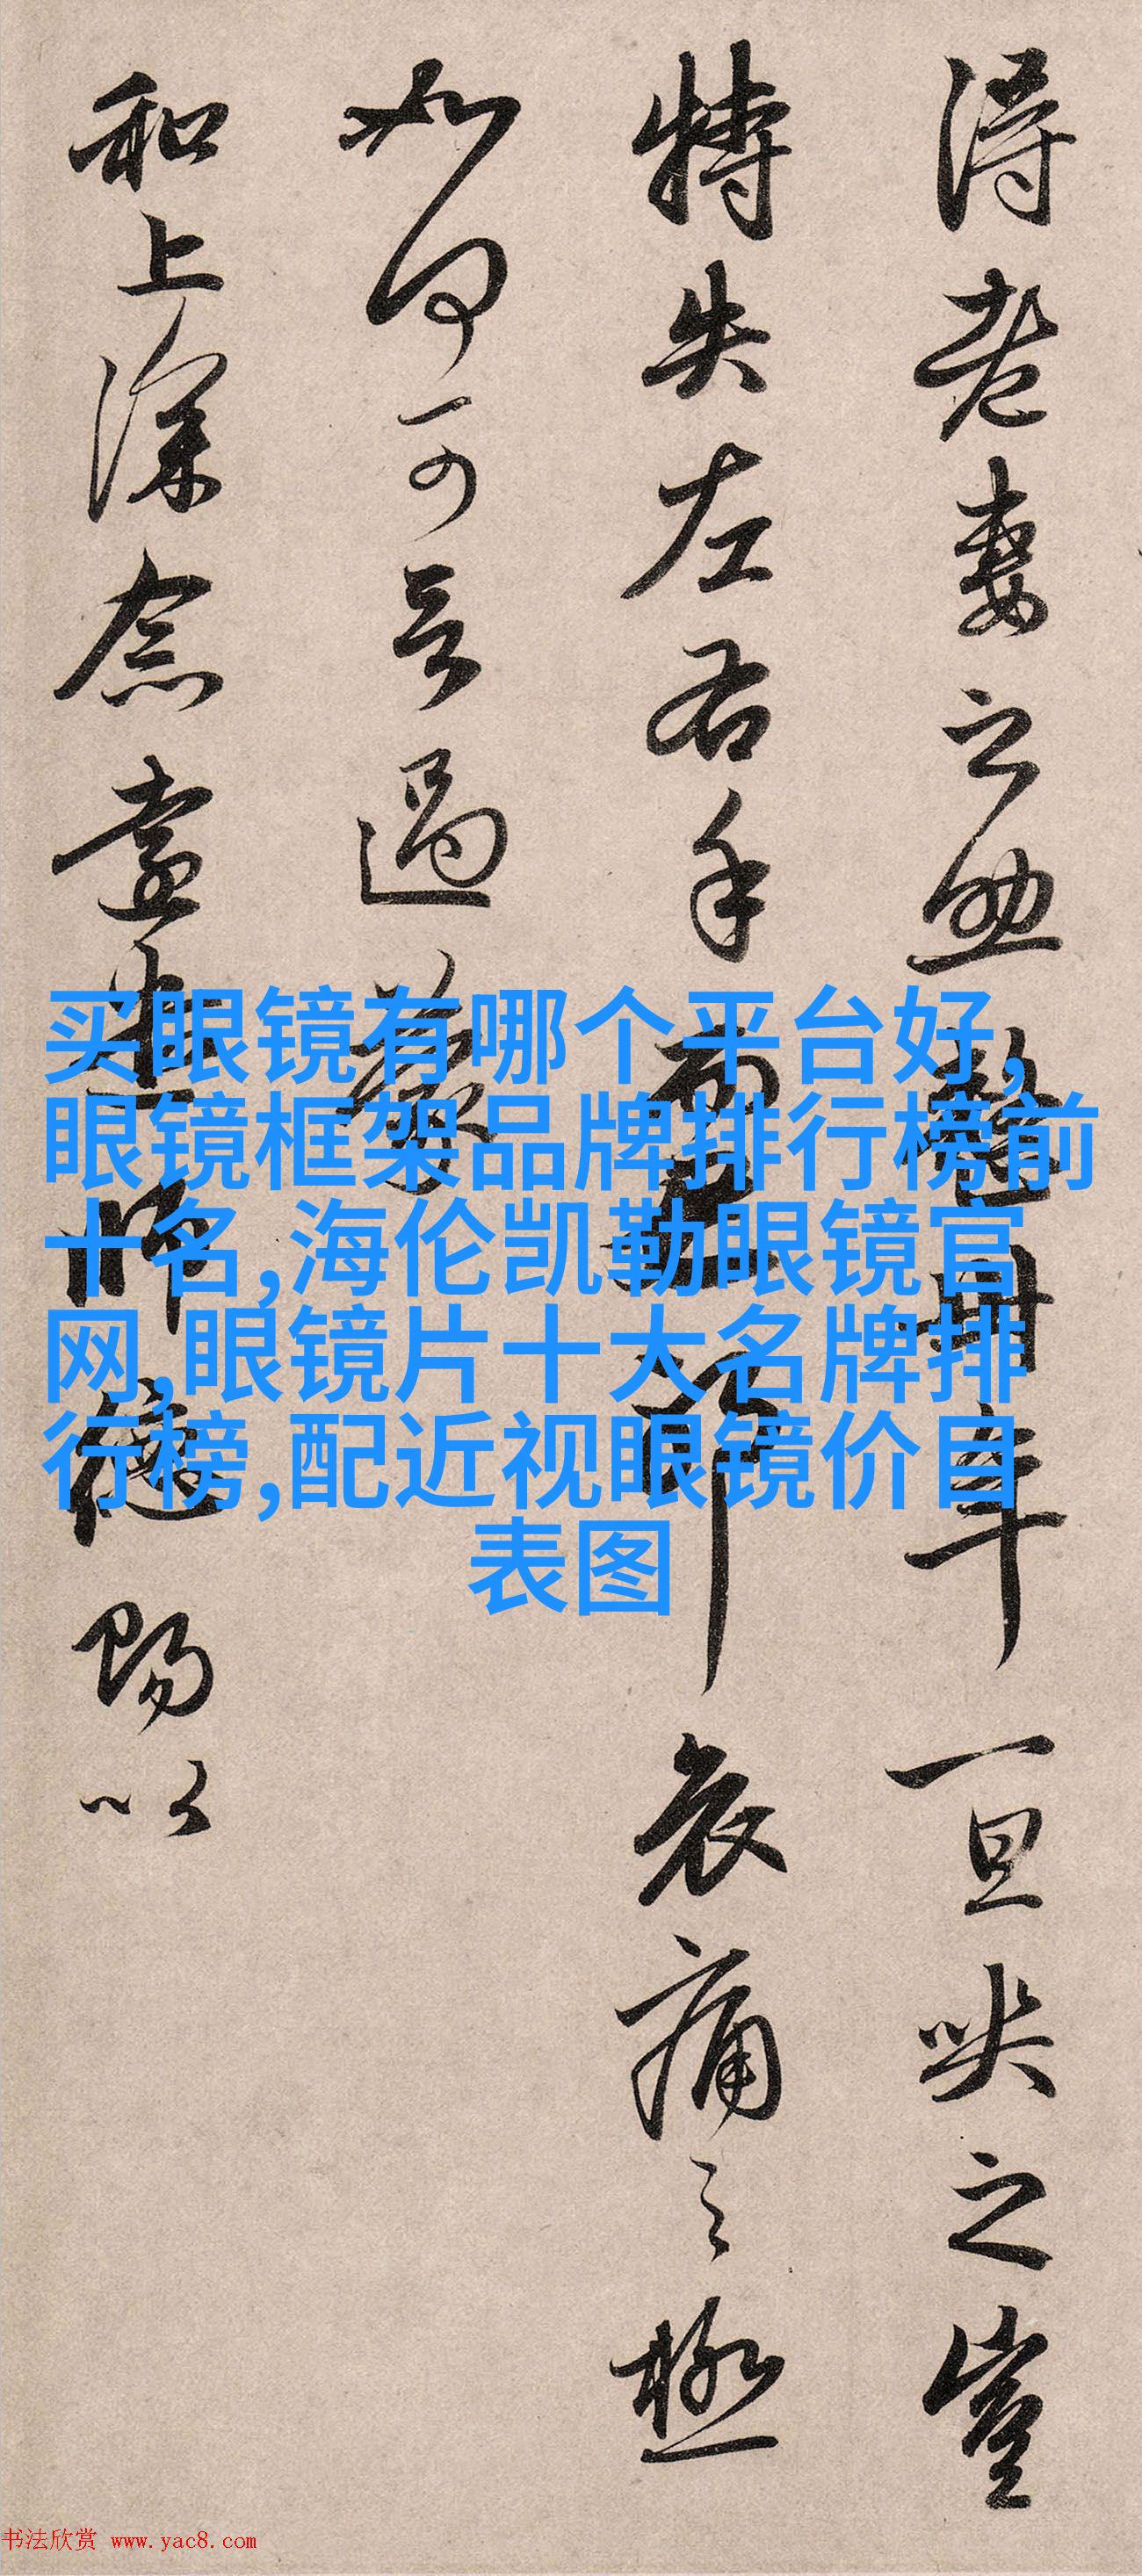 得老妻之助整卅年一旦哭之豈
特失左右手而已耶哀痛之極
如何可言過蒙
和上深念師德賜以
买眼镜有哪个平台好,
眼镜框架品牌排行榜前
十名,海伦凯勒眼镜官
网,眼镜片十大名牌排
行榜,配近视眼镜价目
表图
书法欣赏 www.yac8.com